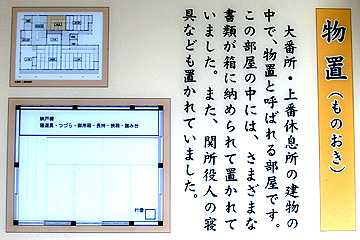 物置（ものおき）
大番所・上番休息所の建物の
中で、物置と呼ばれる部屋です。
この部屋の中には、さまざまな
書類が箱に納められて置かれて
いました。また、関所役人の寝
具なども置かれていました。
納戸棚
寝道具・つづら・御用箱・長持・挟箱・踏み台
行燈